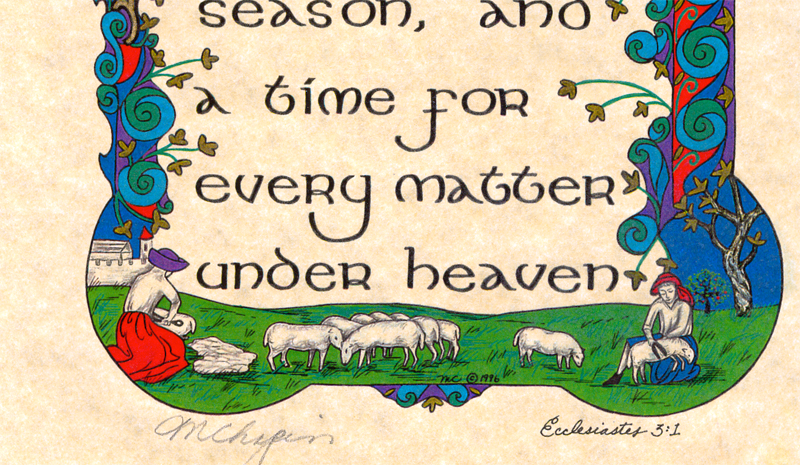 season, and
a time for
every matter
under heaven.
MC © 1996
MChapin
Ecclesiastes 3:1